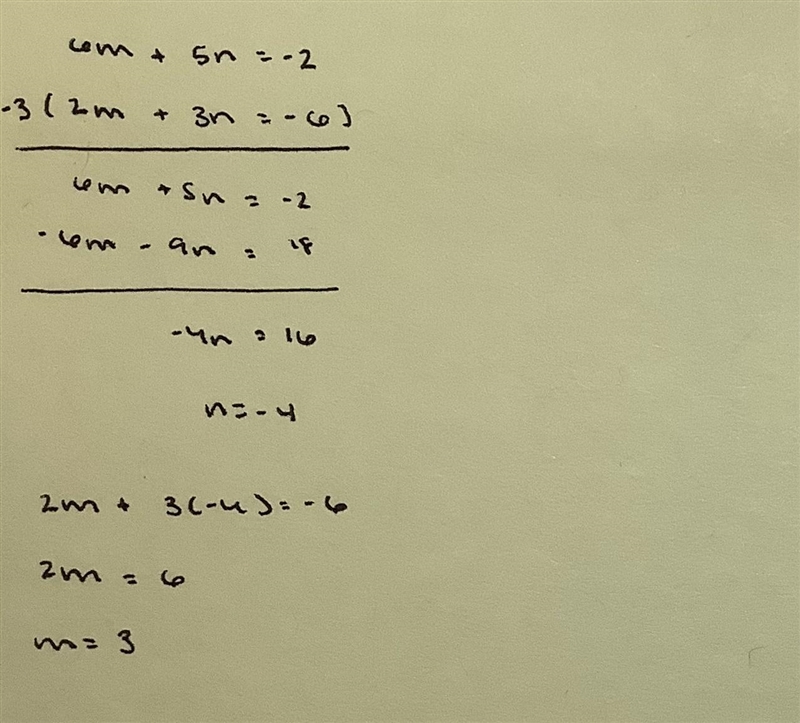 6m + 5n = -2
-3(2m + 3n = -6)
6m + 5n = -2
-6m - 9n = 18
-4n = 16
n = -4
2m + 3(-4) = -6
2m = 6
m = 3